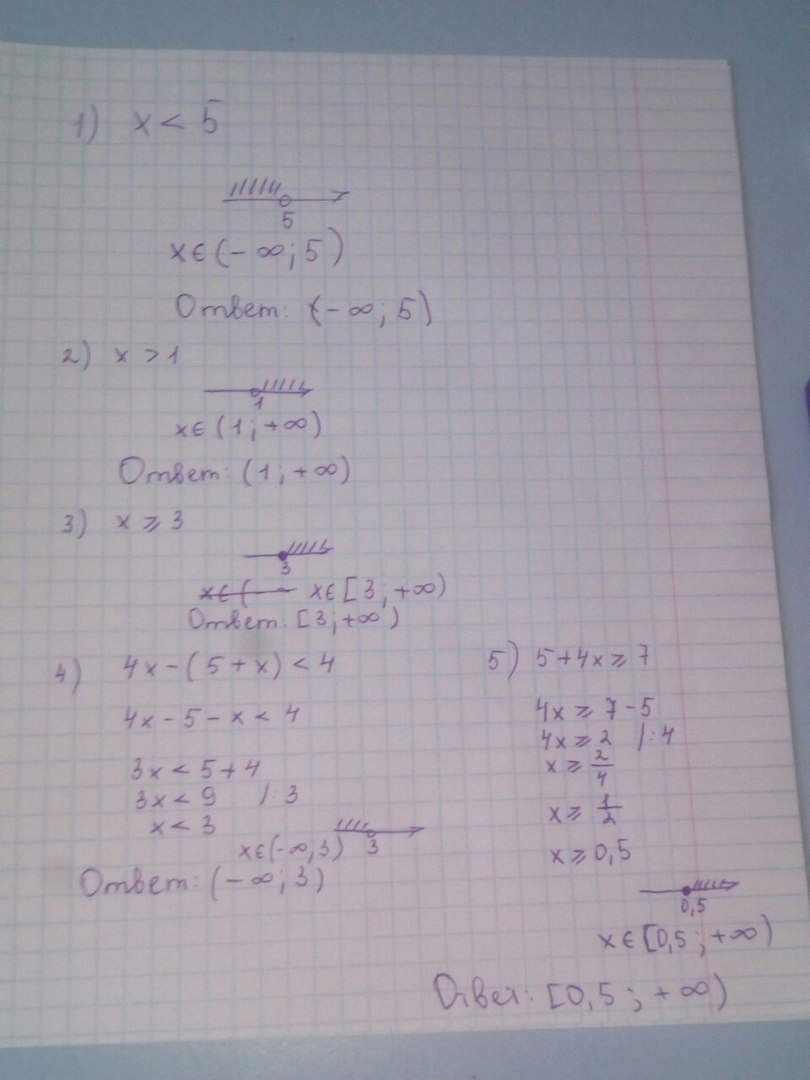 1) x < 5
5
x∈(-∞; 5)
Ответ: (-∞; 5)
2) x > 1
1
x∈(1; +∞)
Ответ: (1; +∞)
3) x ⩾ 3
3
x∈(— x∈[3; +∞)
Ответ: [3; +∞)
4) 4x-(5+x) < 4
4x-5-x < 4
3x < 5+4
3x < 9 /:3
x < 3
x∈(-∞; 3) 3
Ответ: (-∞; 3)
5) 5+4x ⩾ 7
4x ⩾ 7-5
4x ⩾ 2 /:4
x ⩾ 2/4
x ⩾ 1/2
x ⩾ 0,5
0,5
x∈[0,5; +∞)
Ответ: [0,5; +∞)